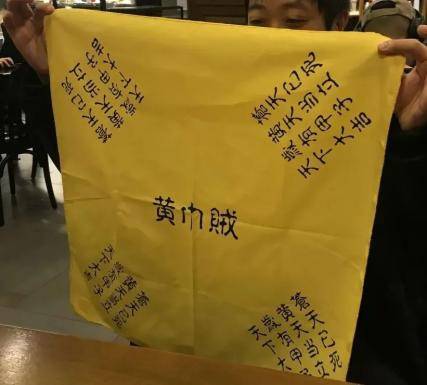 蒼天已死
黄天当立
歳有甲子
天下大吉
蒼天已死
黄天当立
歳有甲子
天下大吉
黄巾賊
蒼天已死
黄天当立
歳有甲子
天下大吉
蒼天已死
黄天当立
歳有甲
天下大